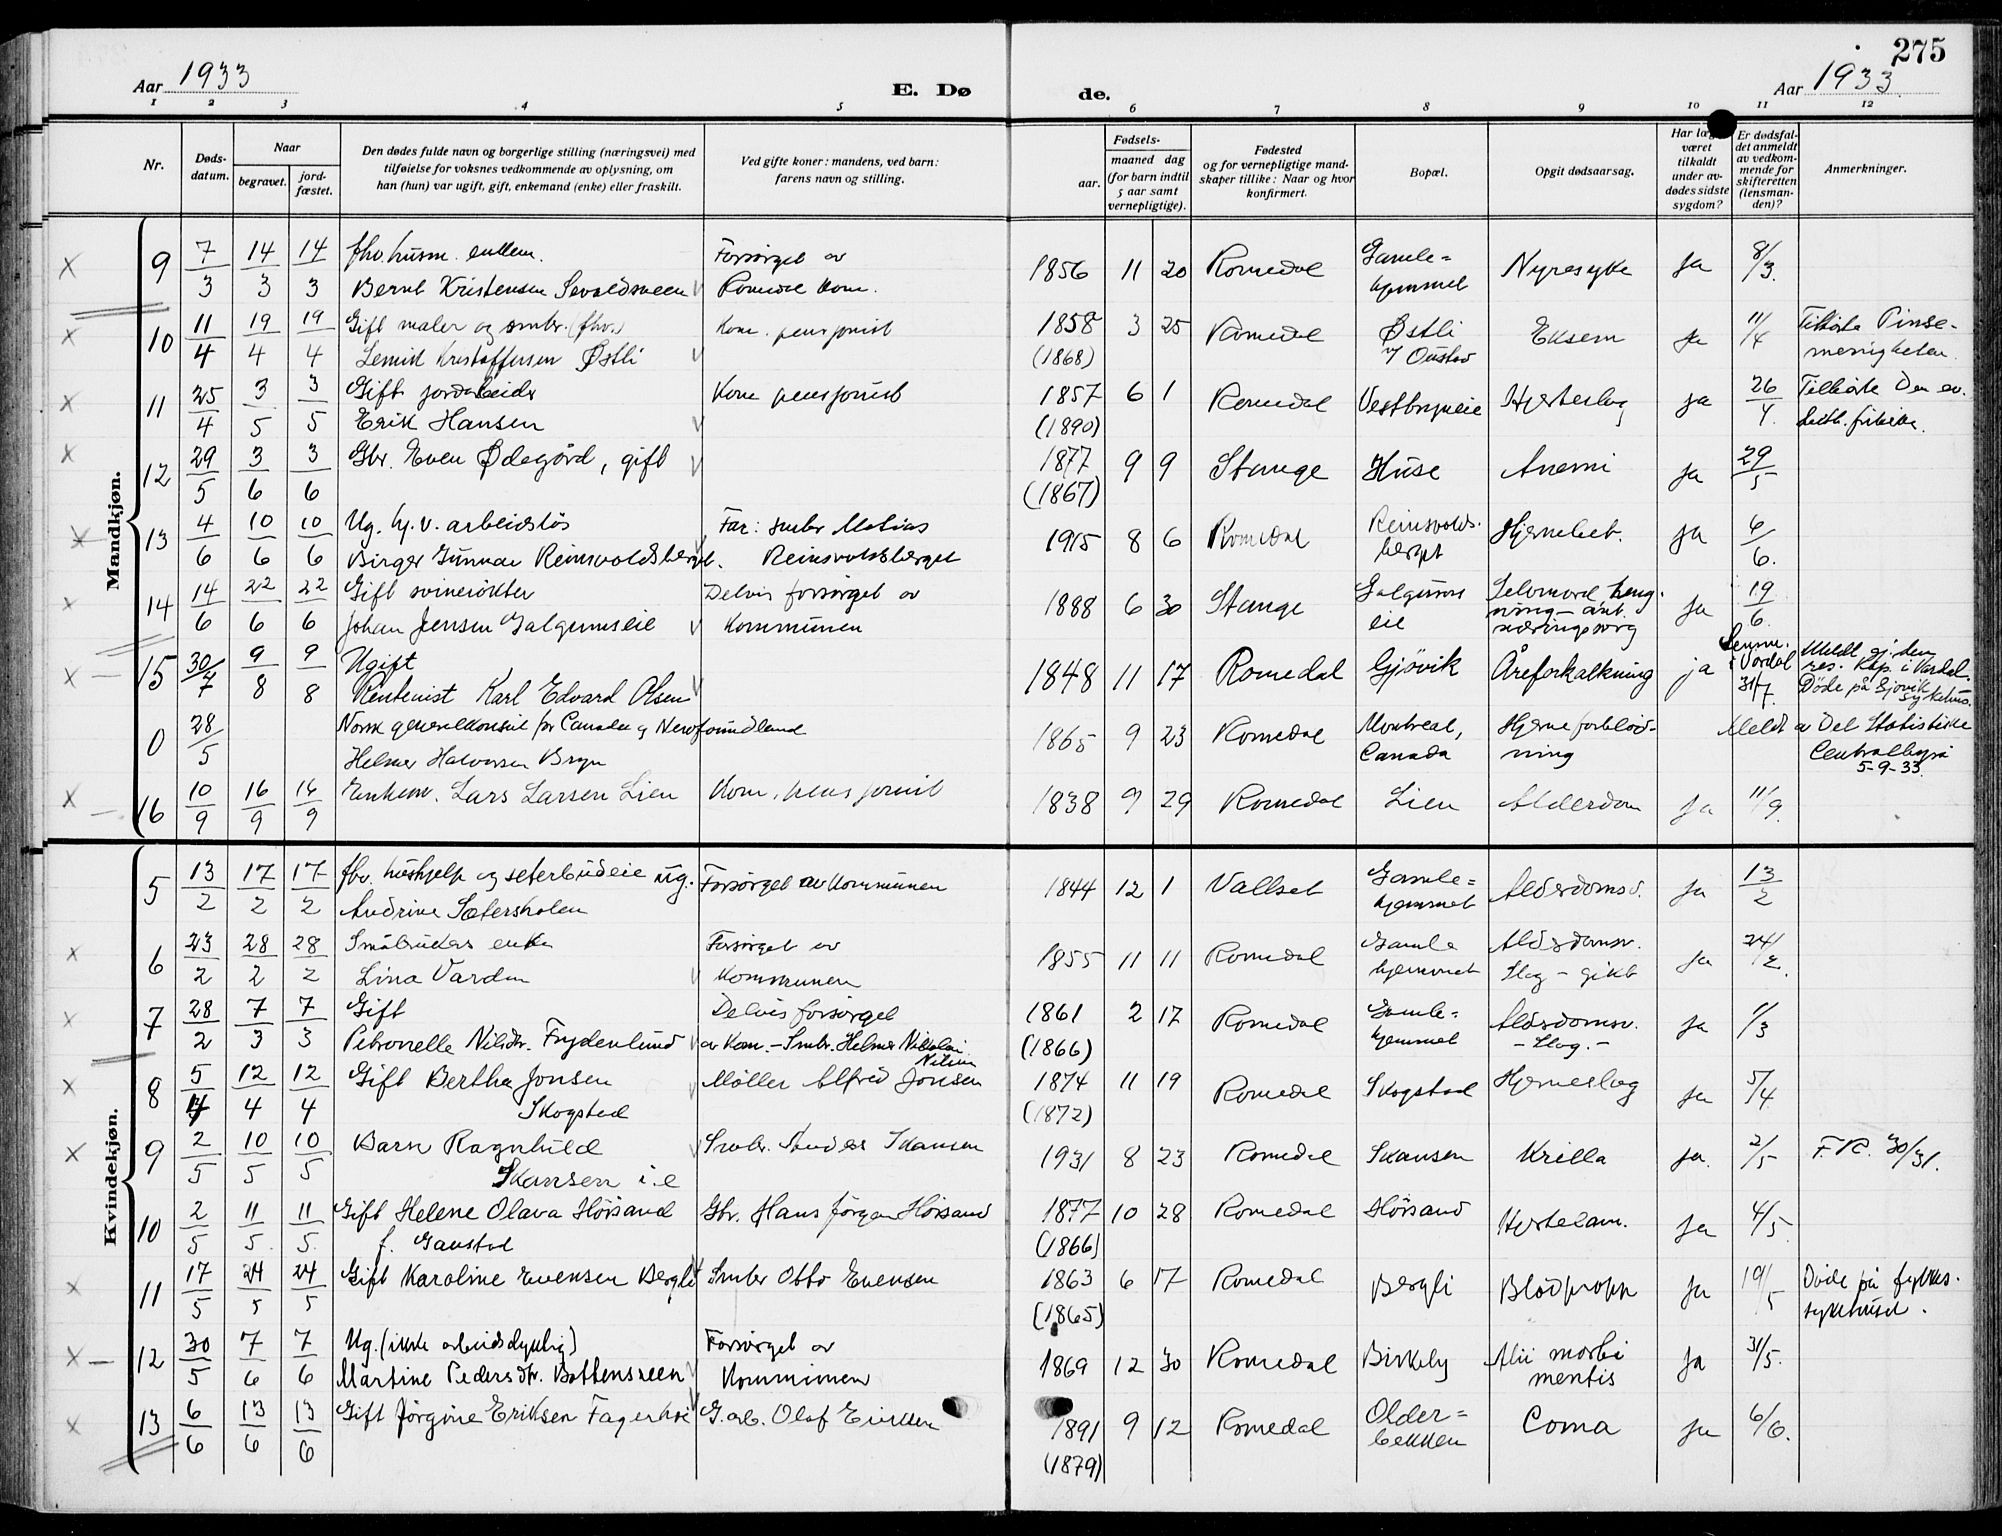 275
Aar 1933
E. Dø
de.
Aar 1933
1 2 3 4 5 6 7 8 9 10 11 12
Nr.
Døds-
datum.
Naar
begravet.
jord-
fæstet.
Den dødes fulde navn og borgerlige stilling (næringsvei) med
tilføielse for voksnes vedkommende av oplysning, om
han (hun) var ugift, gift, enkemand (enke) eller fraskilt.
Ved gifte koner: mandens, ved barn:
farens navn og stilling.
Fødsels-
aar.
maaned dag
(for barn indtil
5 aar samt
vernepligtige).
Fødested
og for vernepligtige mand-
skaper tillike: Naar og hvor
konfirmert.
Bopæl.
Opgit dødsaarsag.
Har læge
været
tilkaldt
under av-
dødes sidste
sygdom?
Er dødsfal-
det anmeldt
av vedkom-
mende for
skifteretten
(lensman-
den)?
Anmerkninger.
Mandkjøn.
9 7/3 14/3 14/3 fhv. husm. enkem. Forsörget av 1856 11 20 Romedal Gamle= Nyresyke Ja 8/3.
Bernt Kristensen Sevaldsveen Romedal Kom. hjemmet
10 11/4 19/4 19/4 Gift maler og smbr. (fhv.) Kom. pensjonist 1858 3 25 Romedal Østli Eksem Ja 11/4 Tilhörte Pinse-
Kristoffersen Østli (1868) menigheten.
11 25/4 3/5 3/5 Gift jordarbeider Kom pensjonist 1857 6 1 Romedal Hjerteslag ja 26/4. Tilhörte Den ev.
Erik Hansen (1890) luth. frikirke.
12 29/5 3/6 3/6 Gbr. Even Ødegård, gift 1877 9 9 Stange Huse Anemi ja 29/5
(1867)
13 4/6 10/6 10/6 Ug. hj.v. arbeidslös Far: smbr Matias 1915 8 6 Romedal Reinsvolds- Hjernebet. ja 6/6.
Birger Gunnar Reinsvoldsberget. Reinsvoldsberget berget
14 14/6 22/6 22/6 Gift svinerökter Delvis forsörget av 1888 6 30 Stange Galgums Selvmord heng-
Johan Jensen Galgumseie Kommunen eie ning – ant. Ja 19/6.
næringssorg
15 30/7 9/8 9/8 Ugift 1848 11 17 Romedal Gjövik Åreforkalkning ja Lensm. i Vardal 31/7. Meldt gj. den
Rentenist Karl Edvard Olsen res. Kap. i Vardal.
Döde på Gjövik
sykehus.
0 28/5 Norsk generalkonsul for Canada og Newfoundland 1865 9 23 Romedal Montreal, Hjerneforblöd- Meldt av Det Statistiske
Helmer Halvorsen Bryn Canada ning Centralbyrå
5-9-33.
16 10/9 16/9 16/9 Enkem. Lars Larsen Lien Kom. pensjonist 1838 9 29 Romedal Lien Alderdom Ja 11/9.
Kvindekjøn.
5 13/2 17/2 17/2 fhv. hushjelp og seterbudeie ug. Forsörget av Kommunen 1844 12 1 Vallset Gamle= Alderdomsv. Ja 13/2
Andrine Sætersholen hjemmet
6 23/2 28/2 28/2 Småbrukers enke Forsörget av 1855 11 11 Romedal Gamle Alderdomsv. Ja 24/2.
Lina Varden Kommunen hjemmet Slag – gikt
7 28/2 7/3 7/3 Gift Delvis forsörget 1861 2 17 Romedal Gamle= Alderdomsv. Ja 1/3
Petronelle Nilsdtr. Frydenlund av Kom. – Smbr. Helmer Nikolai (1866) hjemmet – Slag. –
Nilsen
8 5/4 12/4 12/4 Gift Bertha Jonsen Møller Alfred Jonsen 1874 11 19 Romedal Skogstad Hjerneslag Ja 5/4
Skogstad (1872)
9 2/5 10/5 10/5 Barn Ragnhild Smbr. Anders Skansen 1931 8 23 Romedal Skansen Krilla Ja. 2/5 F.R. 30/31.
Skansen i.e
10 2/5 11/5. 11/5. Gift Helene Olava Hörsand Gbr. Hans Jörgen Hörsand 1877 10 28 Romedal Hörsand Hjertelam. Ja 4/5
f. Gaustad (1866)
11 17/5 24/5 24/5 Gift Karoline Evensen Bergli Smbr Otto Evensen 1863 6 17 Romedal Bergli Blodpropp Ja 19/5 Döde på fylkes-
(1865) sykehuset.
12 30/5 7/6 7/6 Ug. (ikke arbeidsdyktig) Forsörget av 1869 12 30 Romedal Birkely Alii morbi Ja 31/5.
Martine Pedersdtr. Bottensveen Kommunen mentis
13 6/6 13/6 13/6 Gift Jörgine Eriksen Fagerhöi G.arb. Olaf Eriksen 1891 9 12 Romedal Older= Coma Ja 6/6.
(1879) bekken